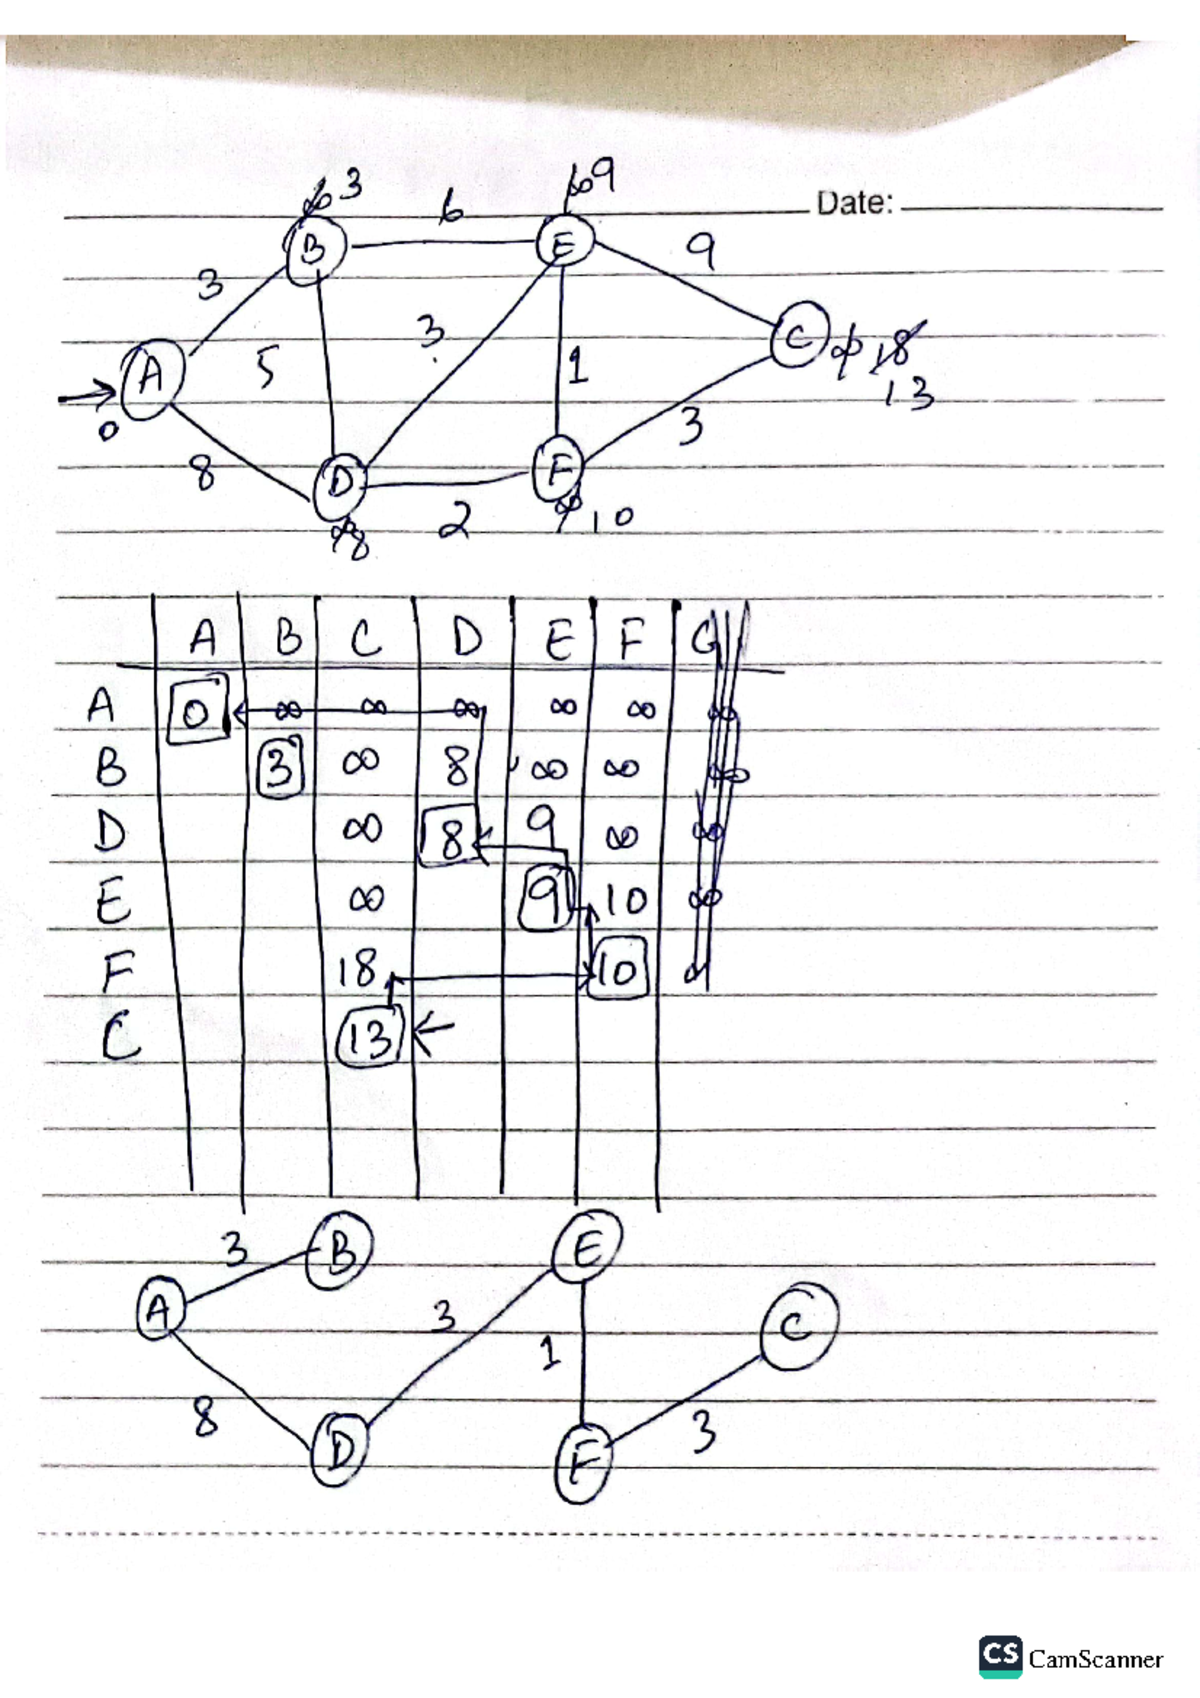 ∞ 3
6
∞ 9
Date:
B
E
9
3
3
C
∞ 18
13
A
5
1
0
3
D
F
8
2
10
∞ 8
A B C D E F G
A 0 ∞ ∞ ∞ ∞ ∞ ∞
B 3 ∞ 8 ∞ ∞ ∞
D ∞ 8 9 ∞ ∞
E ∞ 9 10 ∞
F 18 10
C 13
3 B E
A 3 C
1
8 D F 3
CS CamScanner